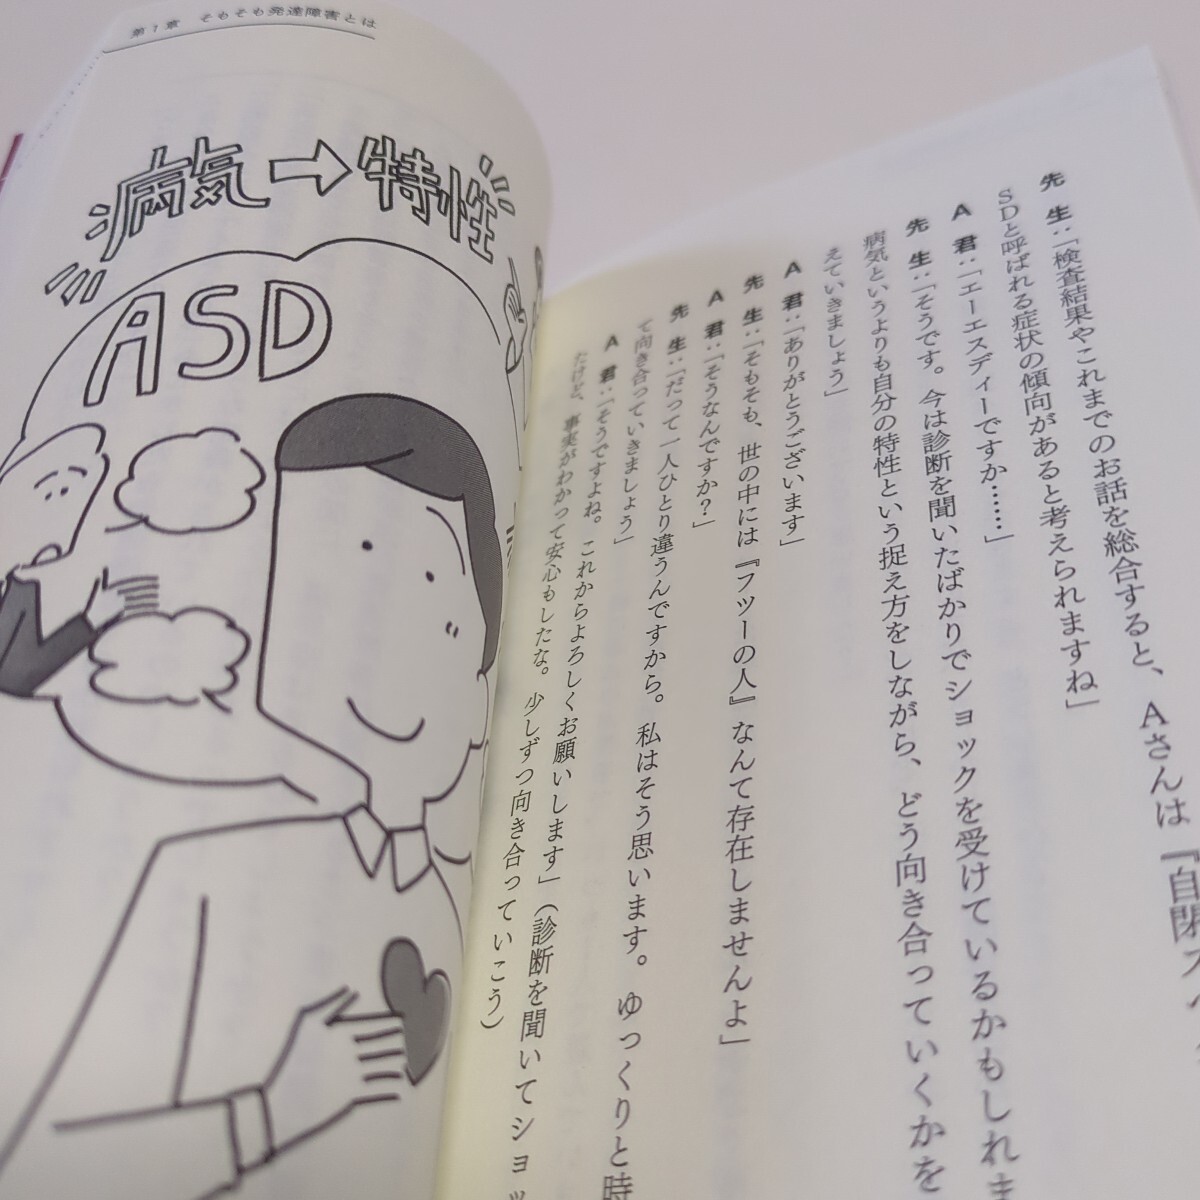 第1章 そもそも発達障害とは
病気→特性
ASD
先 生:「検査結果やこれまでのお話を総合すると、Aさんは『自閉ス
SDと呼ばれる症状の傾向があると考えられますね」
A 君:「エーエスディーですか……」
先 生:「そうです。今は診断を聞いたばかりでショックを受けているかもしれま
病気というよりも自分の特性という捉え方をしながら、どう向き合っていくかを
えていきましょう」
A 君:「ありがとうございます」
先 生:「そもそも、世の中には『フツーの人』なんて存在しませんよ」
A 君:「そうなんですか?」
先 生:「だって一人ひとり違うんですから。私はそう思います。ゆっくりと時
て向き合っていきましょう」
A 君:「そうですよね。これからよろしくお願いします」(診断を聞いてショッ
たけど、事実がわかって安心もしたな。少しずつ向き合っていこう)